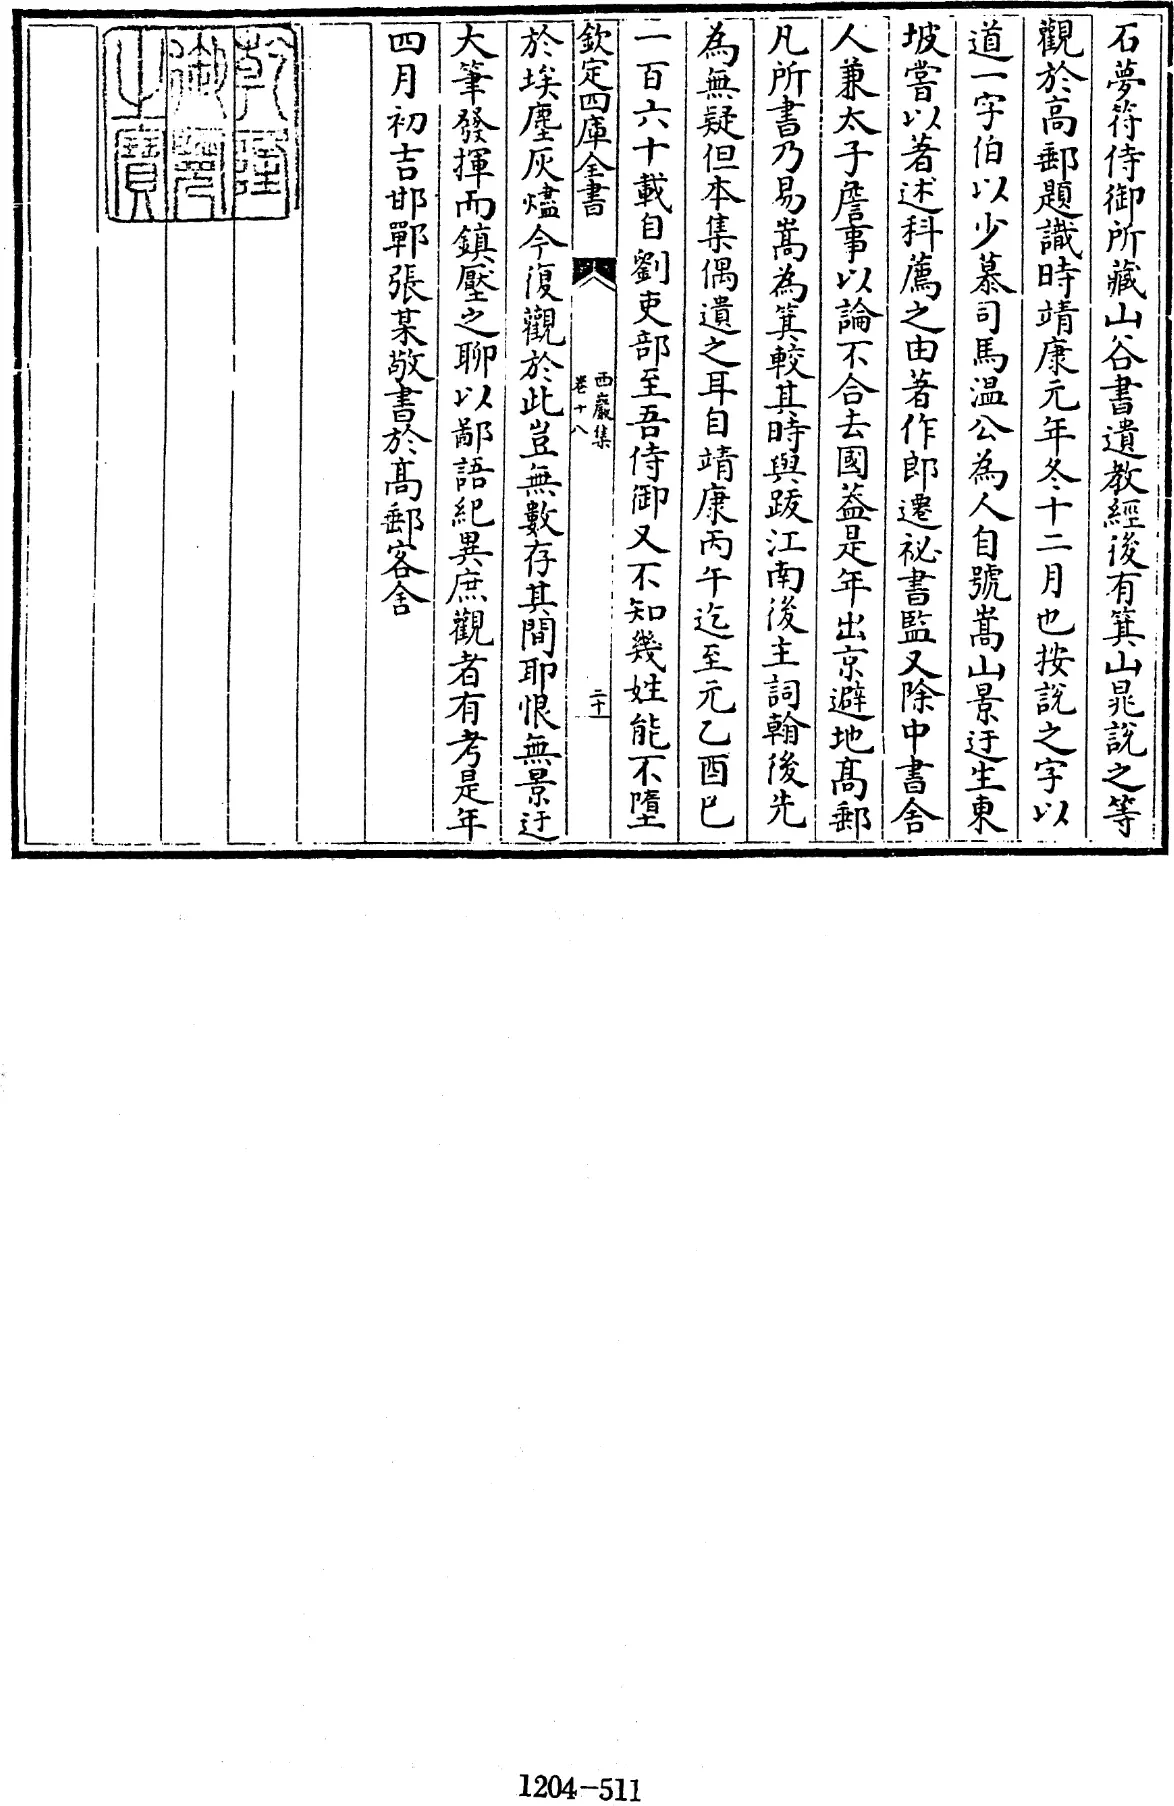 石夢符侍御所藏山谷書遺教經後有箕山晁說之等
觀於高郵題識時靖康元年冬十二月也按說之字以
道一字伯以少慕司馬溫公為人自號嵩山景迂生東
坡嘗以著述科薦之由著作郎遷祕書監又除中書舍
人兼太子詹事以論不合去國葢是年出京避地髙郵
凡所書乃易嵩為箕較其時與跋江南後主詞翰後先
為無疑但本集偶遺之耳自靖康丙午迄至元乙酉巳
一百六十載自劉吏部至吾侍御又不知幾姓能不墮
欽定四庫全書
西巖集
卷十八
二十
於埃塵灰燼今復觀於此豈無數存其間耶恨無景迂
大筆發揮而鎮壓之聊以鄙語紀異庶觀者有考是年
四月初吉邯鄲張某敬書於髙郵客舍
乾隆
御覽
之寶
1204-511